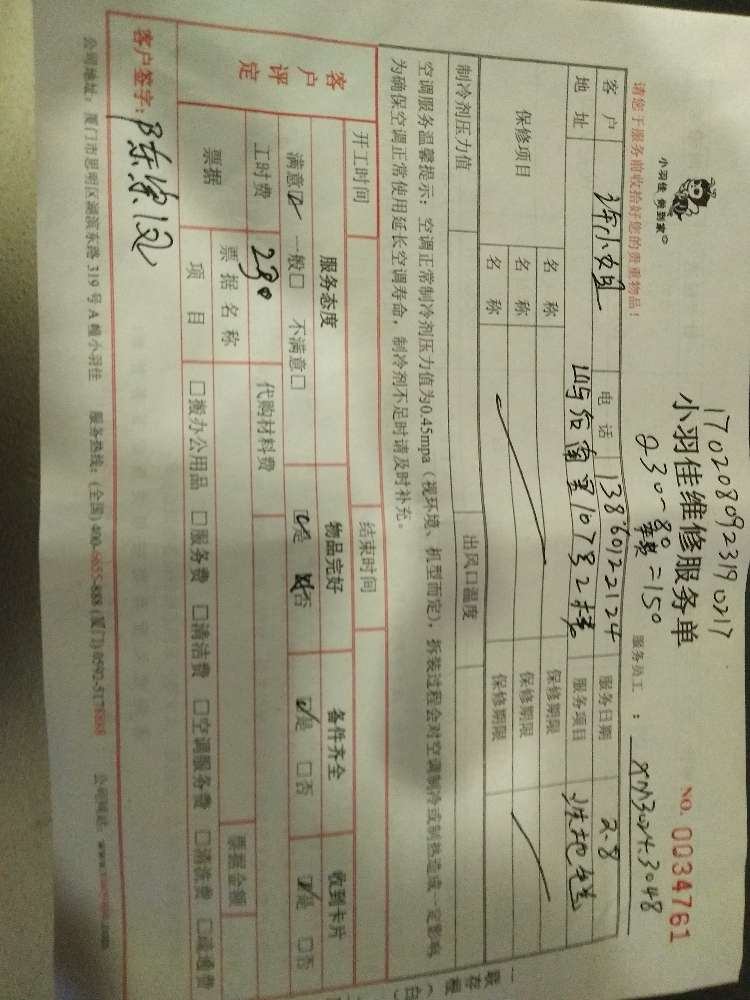 170208092319 0217
230-80=150
小羽佳 做到家
小羽佳维修服务单
NO. 0034761
请您于服务前收拾好您的贵重物品!
服务员工: XM3024.3048
客户 许小姐 电话 13860122124 服务日期 2.8
地址 屿后南里107号2楼 服务项目 洗地毯
保修项目 名称 保修期限
名称 保修期限
名称 保修期限
制冷剂压力值 出风口温度
空调服务温馨提示:空调正常制冷剂压力值为0.45mpa(视环境、机型而定),拆装过程会对空调制冷或制热造成一定影响
为确保空调正常使用延长空调寿命,制冷剂不足时请及时补充。
开工时间 结束时间
客户评定 服务态度 物品完好 备件齐全 收到卡片
满意☑ 一般□ 不满意□ ☑是 □否 ☑是 □否 ☑是 □否
工时费 230 代购材料费
票据 票据名称 票据金额
项目 □搬办公用品 □服务费 □清洁费 □空调服务费 □清洗费 □疏通费
客户签字:陈
公司地址:厦门市思明区湖滨东路319号A幢小羽佳 服务热线:(全国)400-6655-888 (厦门)0592-5178888 公司网站:
一联存根(白